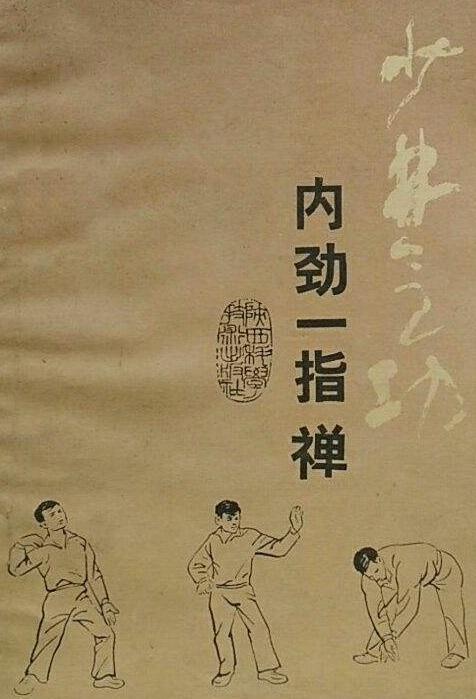 少林气功
内劲一指禅
陕西科学
技术出版社